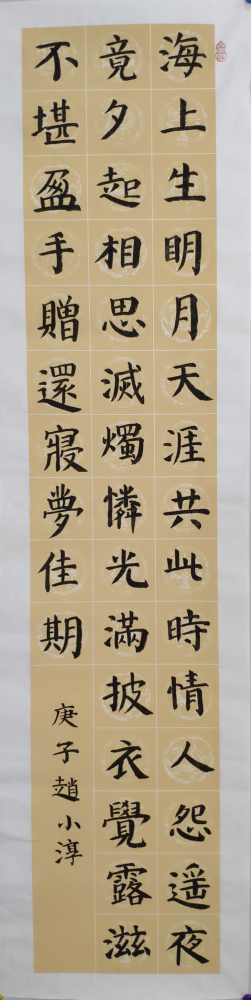 海上生明月天涯共此時情人怨遥夜
竟夕起相思滅燭憐光滿披衣覺露滋
不堪盈手贈還寢夢佳期
庚子趙小淳